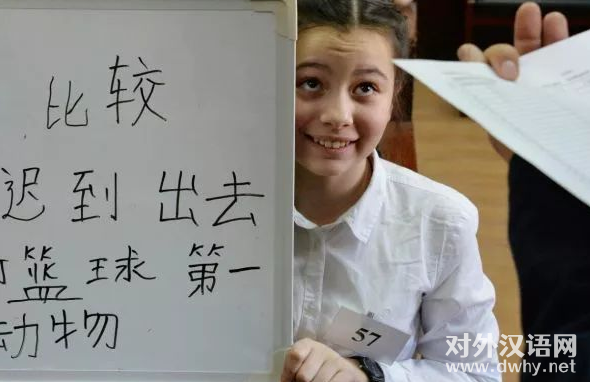 比较
迟到 出去
篮球 第一
动物
57
对外汉语网
www.dwhy.net